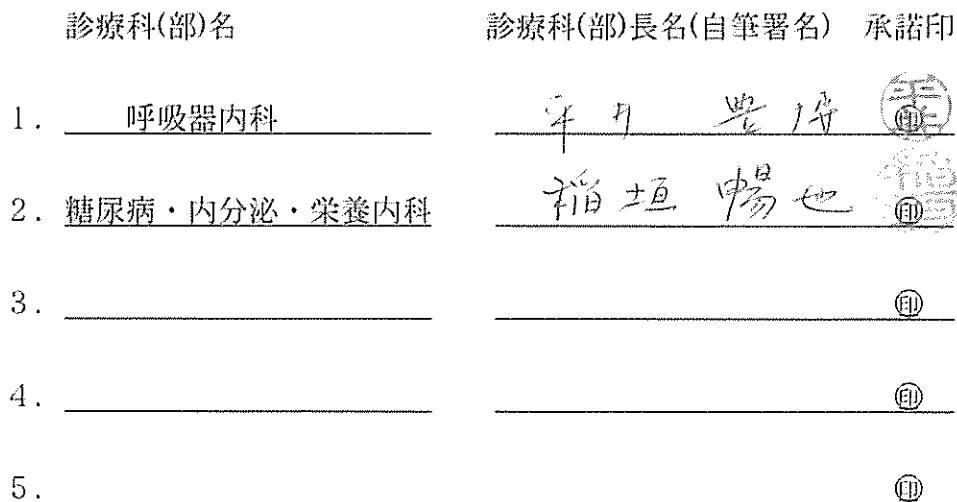 診療科(部)名 診療科(部)長名(自筆署名) 承諾印
1. 呼吸器内科 平井 豊博 ㊞
2. 糖尿病・内分泌・栄養内科 稲垣 暢也 ㊞
3. ㊞
4. ㊞
5. ㊞